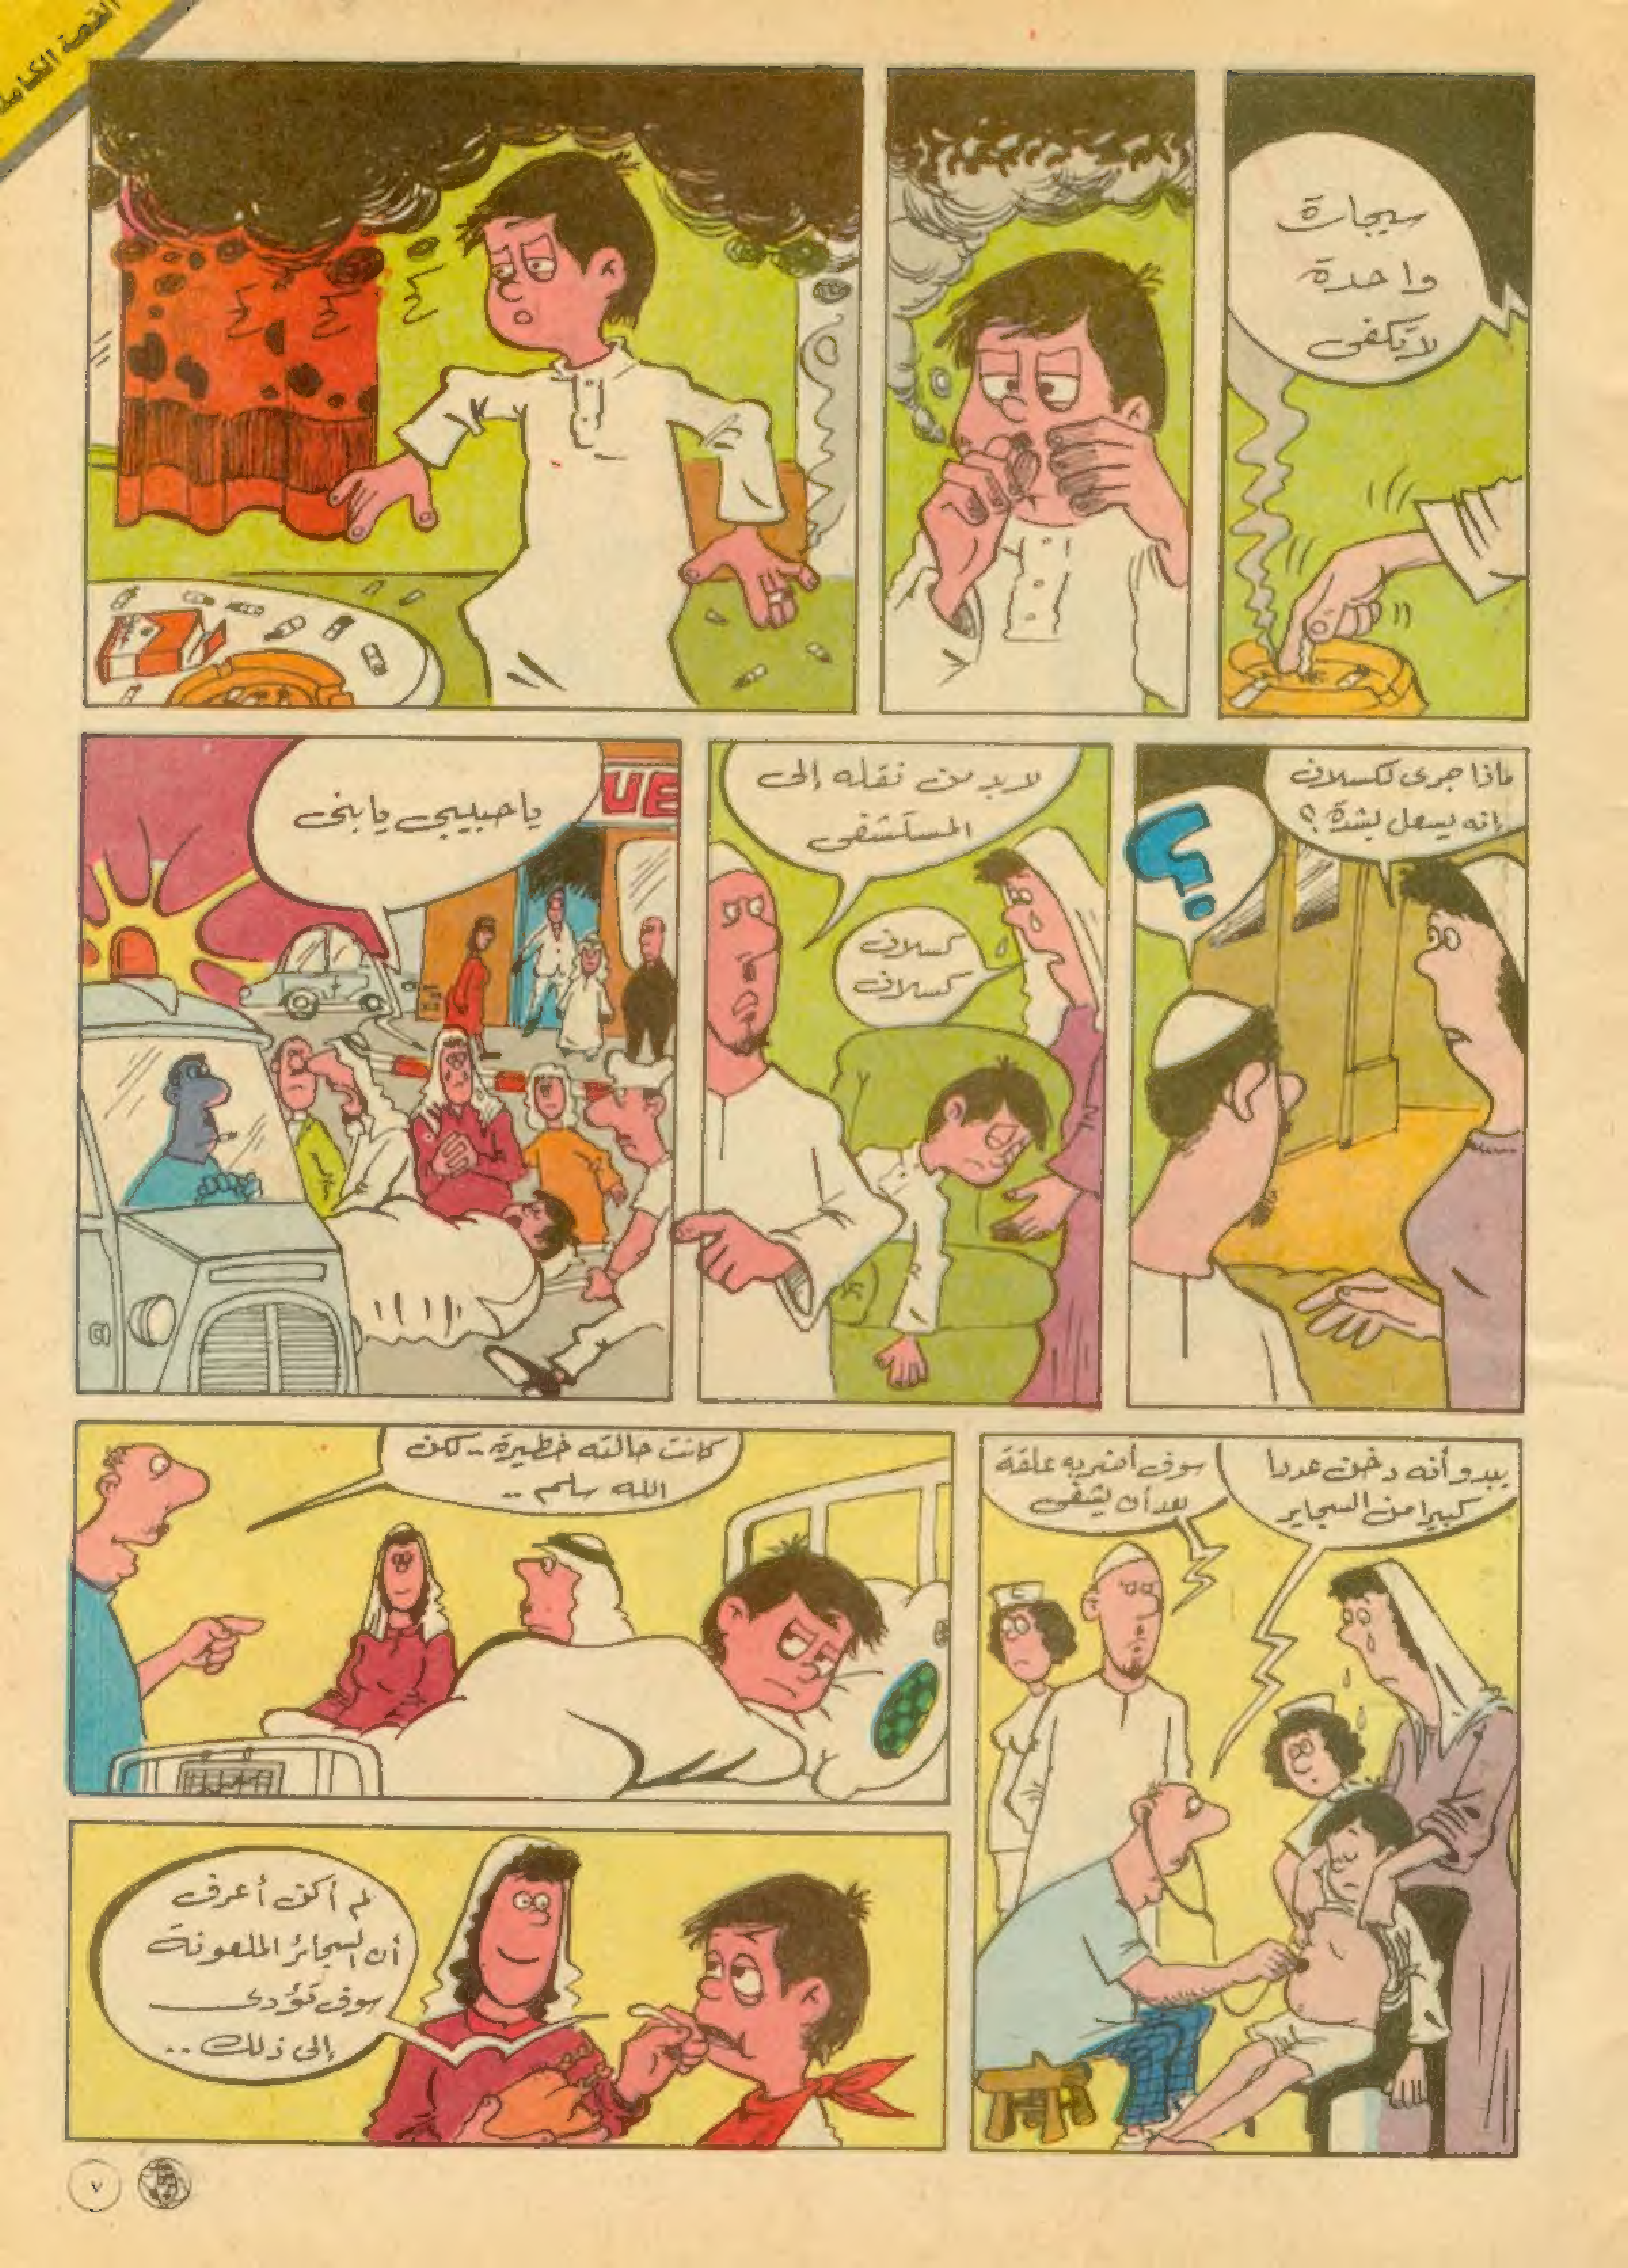 القصة الكاملة
سيجارة
واحدة
لا تكفى
ماذا جرى لكسلان
إنه يسعل بشدة ؟
؟
لا بد من نقله إلى
المستشفى
كسلان
كسلان
يا حبيبى يا بنى
UE
يبدو أنه دخن عددا
كبيرا من السجاير
سوف أضربه علقة
بعد أن يشفى
كانت حالته خطيرة .. لكن
الله سلم ..
لم أكن أعرف
أن السجائر الملعونة
سوف تؤدى
إلى ذلك ..
٧